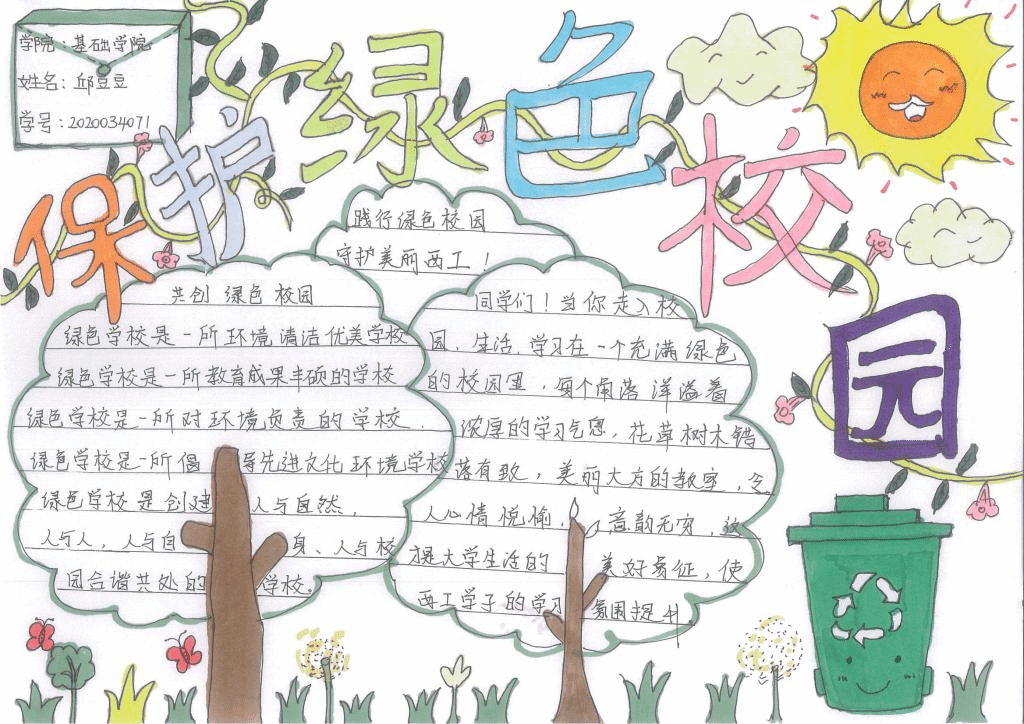 学院：基础学院
姓名：邱豆豆
学号：2020034071
保护绿色校园
践行绿色校园
守护美丽西工！
共创 绿色 校园
绿色学校是一所环境清洁优美学校
绿色学校是一所教育成果丰硕的学校
绿色学校是一所对环境负责的学校.
绿色学校是一所倡导先进文化环境学校
绿色学校是创建人与自然，
人与人，人与自身、人与校
园合谐共处的学校。
同学们！当你走入校
园，生活，学习在一个充满绿色
的校园里，每个角落洋溢着
浓厚的学习气息，花草树木错
落有致，美丽大方的教室，令
人心情悦愉，意韵无穷，这
才是大学生活的美好象征，使
西工学子的学习氛围提升.